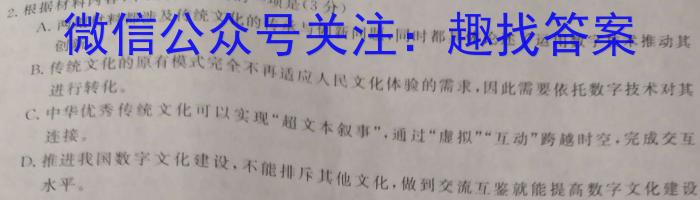 2. 根据材料内容 项是(3分)
微信公众号关注：趣找答案
A. 两 及传统文化的传承与创新问题，同时都 数字技术推动其
创新
B. 传统文化的原有模式完全不再适应人民文化体验的需求，因此需要依托数字技术对其
进行转化。
C. 中华优秀传统文化可以实现“超文本叙事”，通过“虚拟”“互动”跨越时空，完成交互
连接。
D. 推进我国数字文化建设，不能排斥其他文化，做到交流互鉴就能提高数字文化建设
水平。